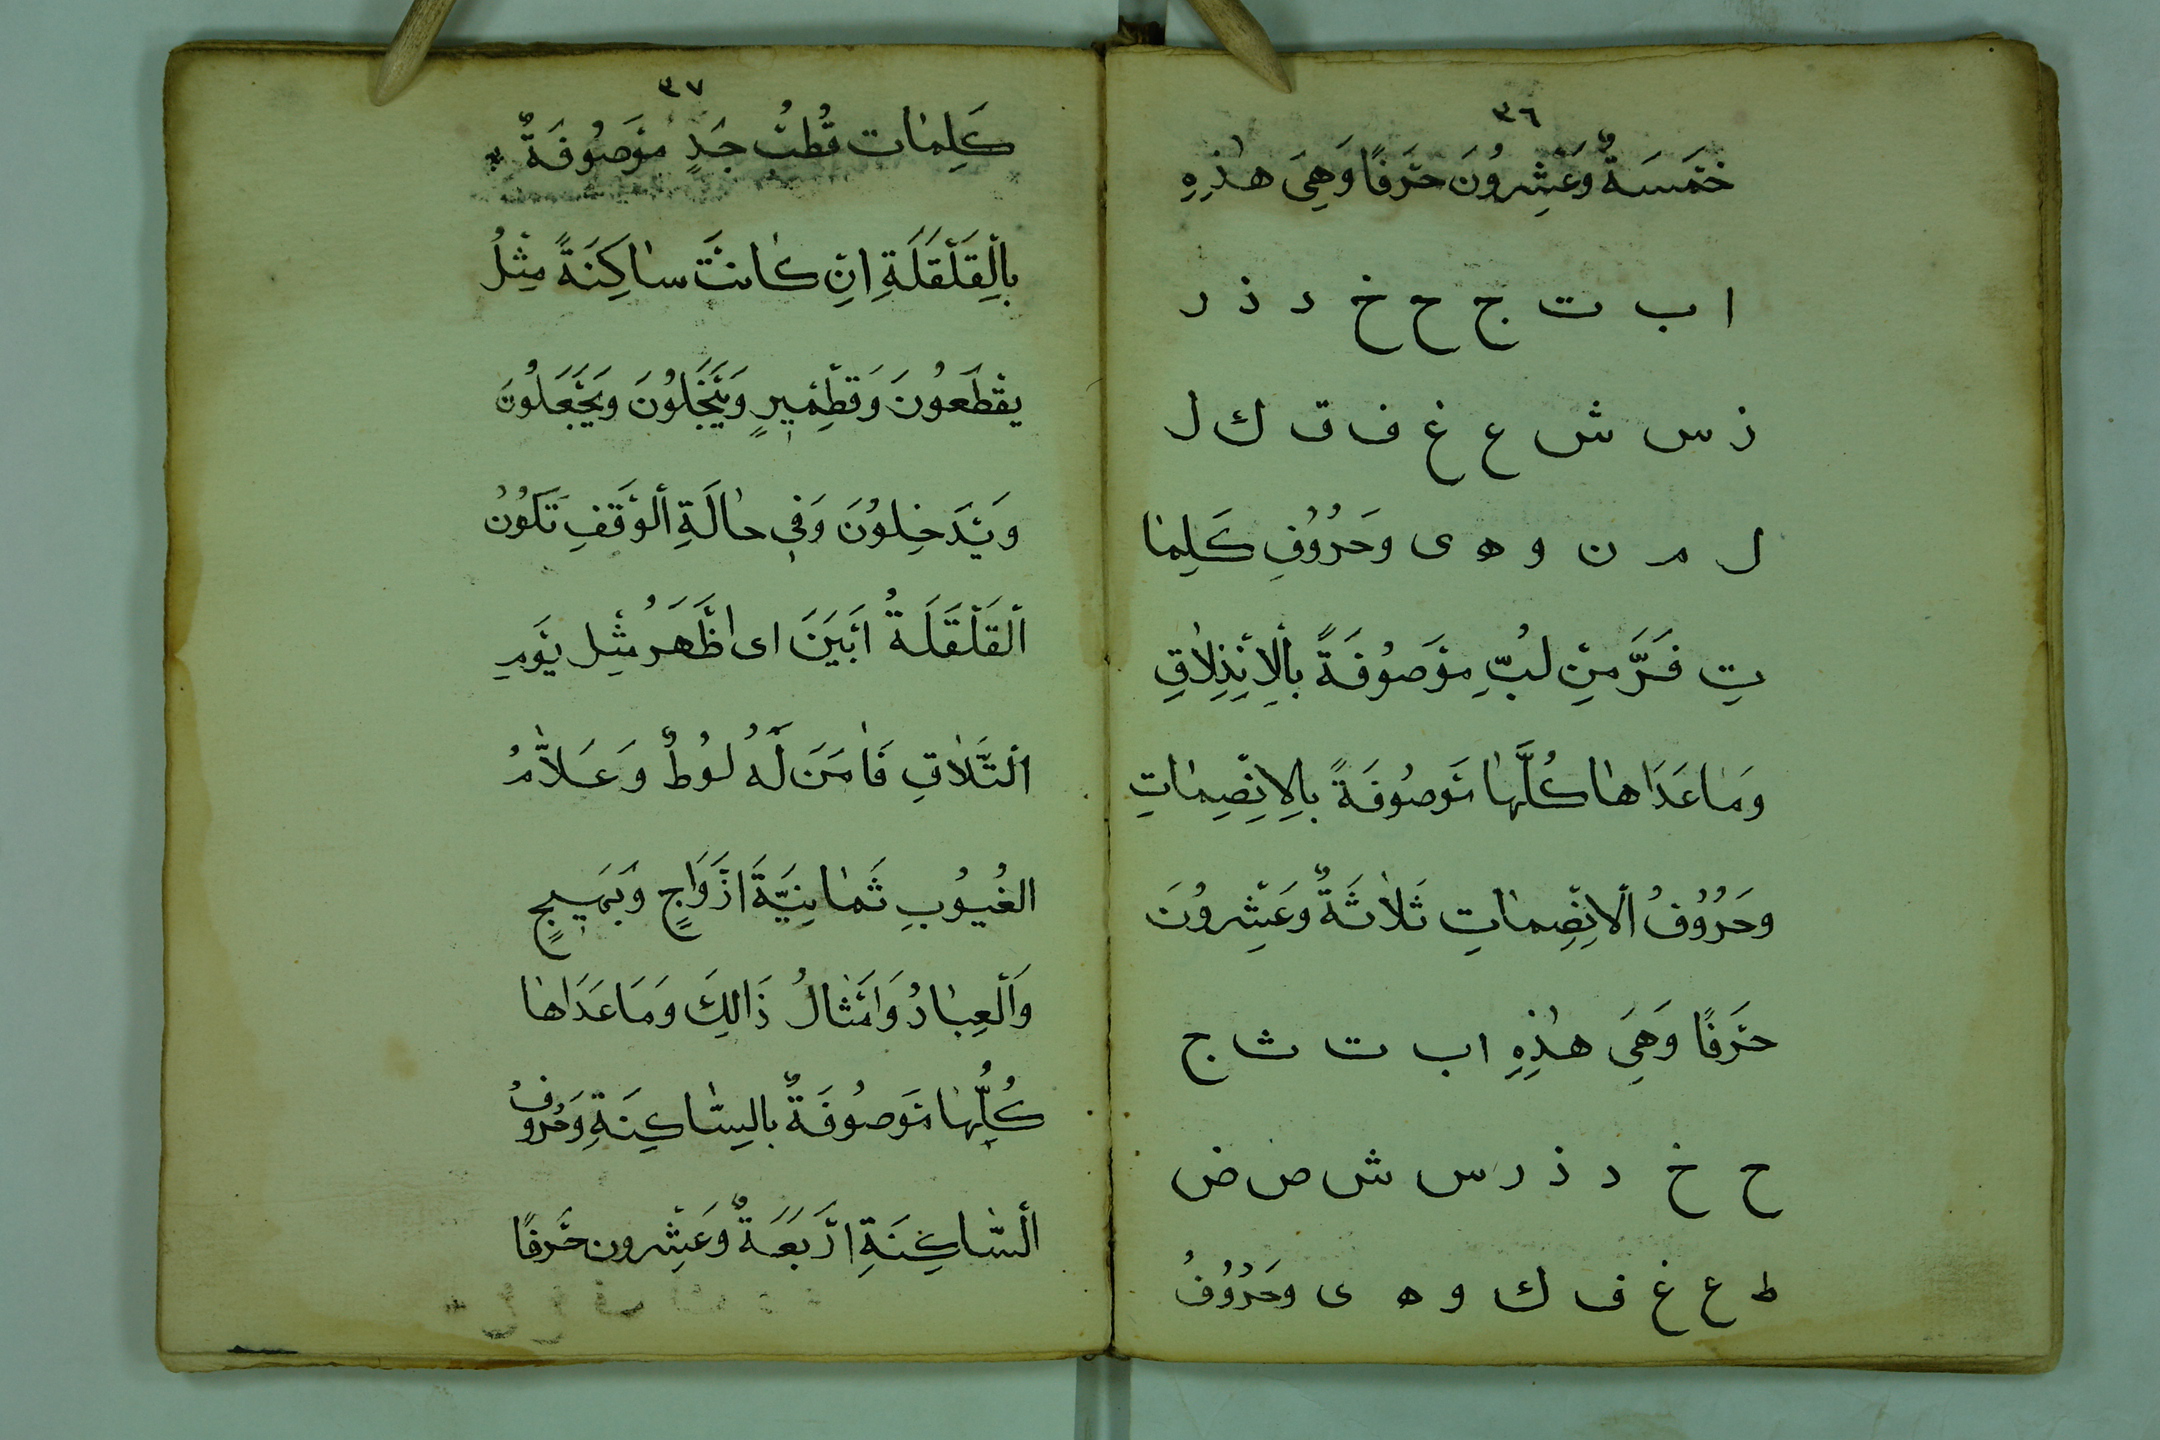 ٣٦
خَمْسَةٌ وَعِشْرُونَ حَرْفًا وَهِيَ هٰذِهِ
ا ب ت ج ح خ د ذ ر
ز س ش ع غ ف ق ك ل
ل م ن و ه ى وَحُرُوْفِ كَلِمٰا
تِ فَرَّ مِنْ لُبِّ مَوْصُوْفَةً بِالْاِنْذِلَاقِ
وَمٰا عَدَاهٰا كُلُّهٰا مَوْصُوْفَةً بِالْاِنْصِمٰاتِ
وَحُرُوْفُ الْاِنْصِمٰاتِ ثَلَاثَةٌ وَعِشْرُوْنَ
حَرْفًا وَهِيَ هٰذِهِ ا ب ت ث ج
ح خ د ذ ر س ش ص ض
ط ع غ ف ك و ه ى وَحُرُوْفُ
٣٧
كَلِمٰات قُطْبُ جَدٍ مَوْصُوْفَةٌ *
بِالْقَلْقَلَةِ اِنْ كٰانَتْ سٰاكِنَةً مِثْلُ
يَقْطَعُوْنَ وَقِطْمِيْرٍ وَيَبْخَلُوْنَ وَيَجْعَلُوْنَ
وَيَدْخِلُوْنَ وَفِي حٰالَةِ الْوَقْفِ تَكُوْنُ
اَلْقَلْقَلَةُ اَبْيَنَ اى اَظْهَرُ مِثْل يَوْمِ
الْتَّلَاقِ فَاٰمَنَ لَهُ لُوْطٌ وَعَلَّامُ
الغُيُوْبِ ثَمٰانِيَّةَ اَزْوَاجٍ وَبَهِيْجٍ
وَالْعِبٰادُ وَاَمْثٰالُ ذَالِكَ وَمَا عَدَاهٰا
كُلُّهٰا مَوْصُوْفَةٌ بِالسّٰاكِنَةِ وَحُرُوْفُ
اَلسّٰاكِنَةِ اَرْبَعَةٌ وَعِشْرون حَرْفًا